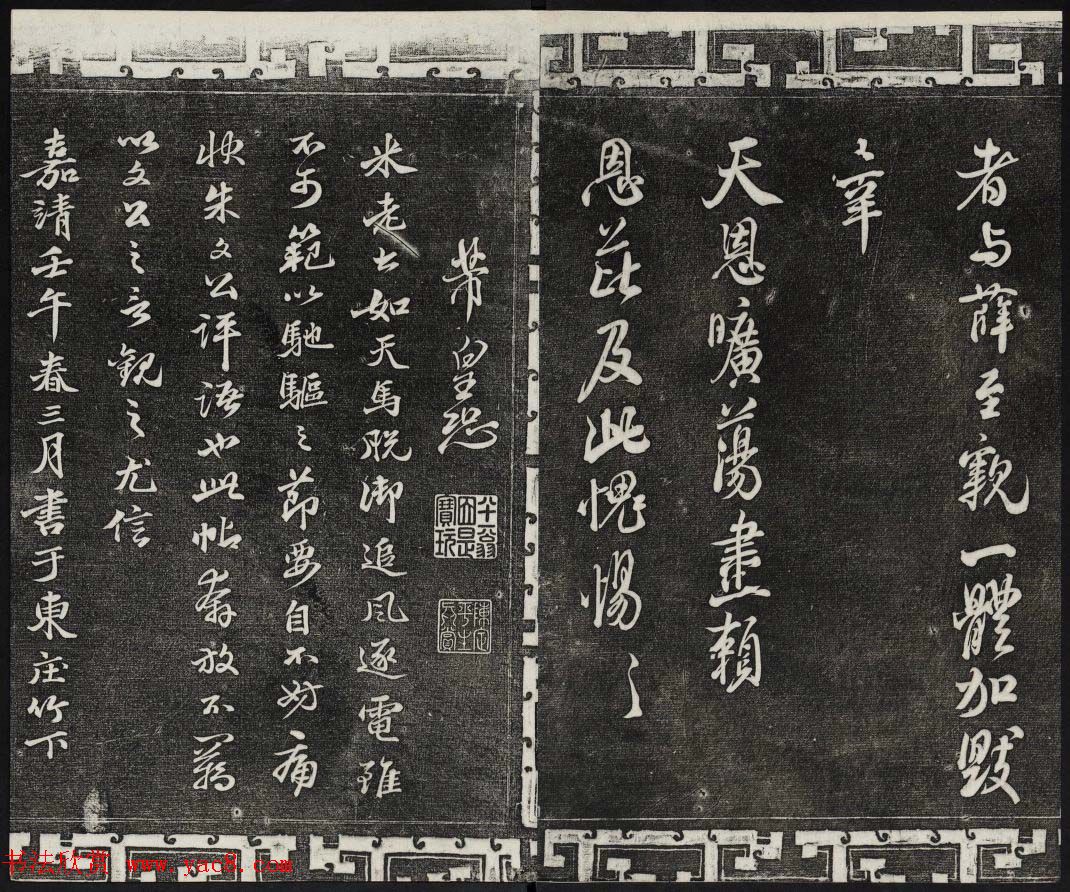 者与薛至親一體加毀
〻幸
天恩曠蕩盡賴
恩芘及此愧惕〻
芾皇恐
陳定
平生
真賞
米老書如天馬脫御追風逐電雖
不可範以馳驅之節要自不妨痛
快朱文公評語也此帖奔放不羈
以文公之言觀之尤信
嘉靖壬午春三月書于東庄竹下
书法欣赏 www.yac8.com